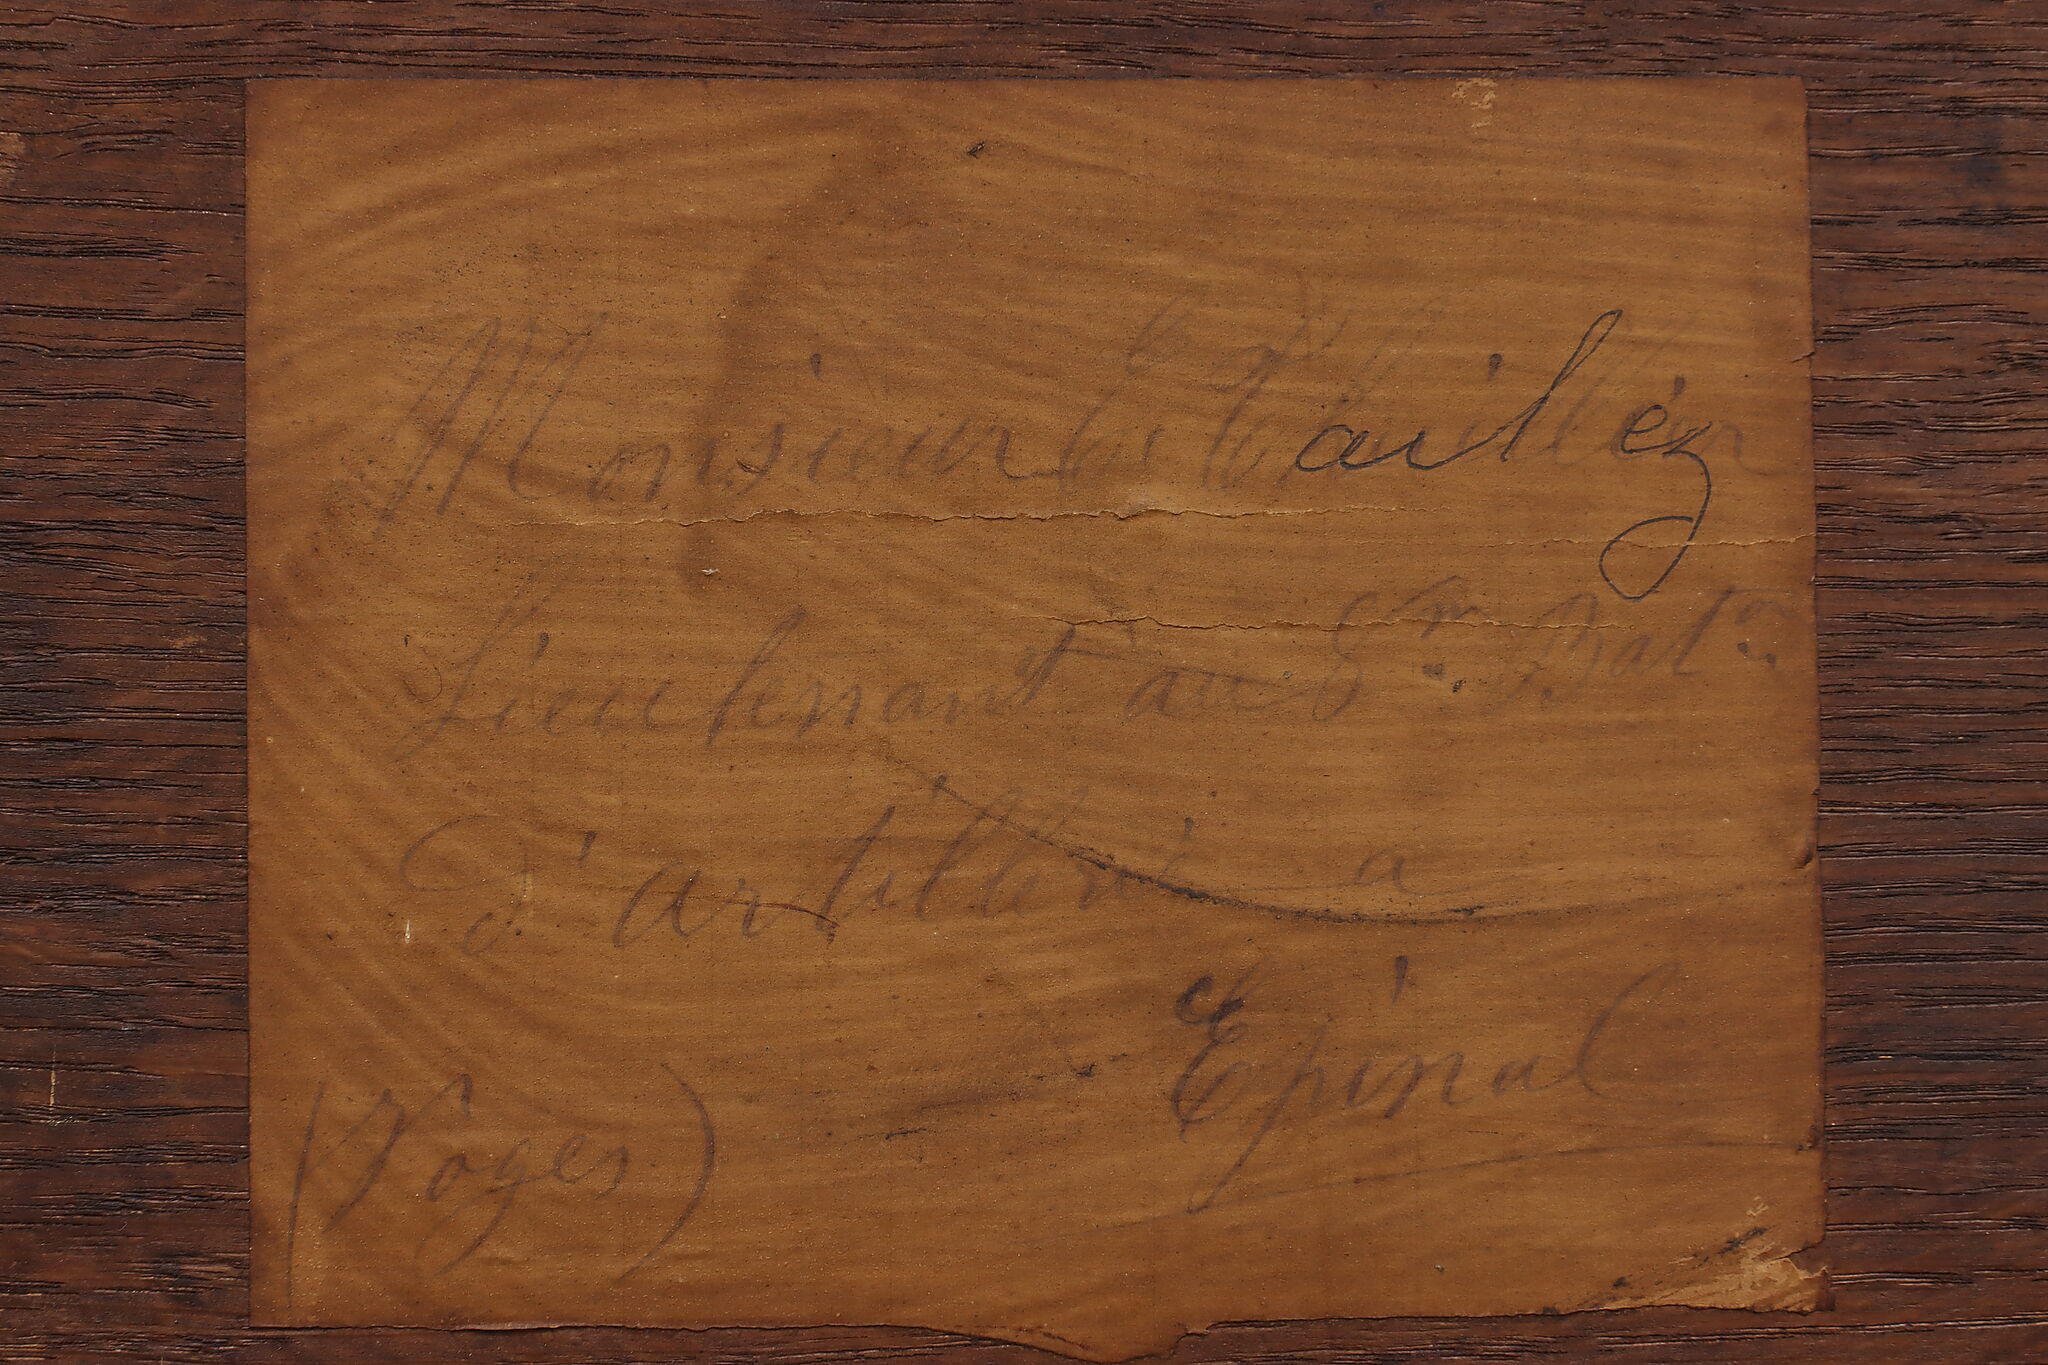 Monsieur
Lieutenant au 8m Batn
d'artillerie a
Epinal
(Voges)